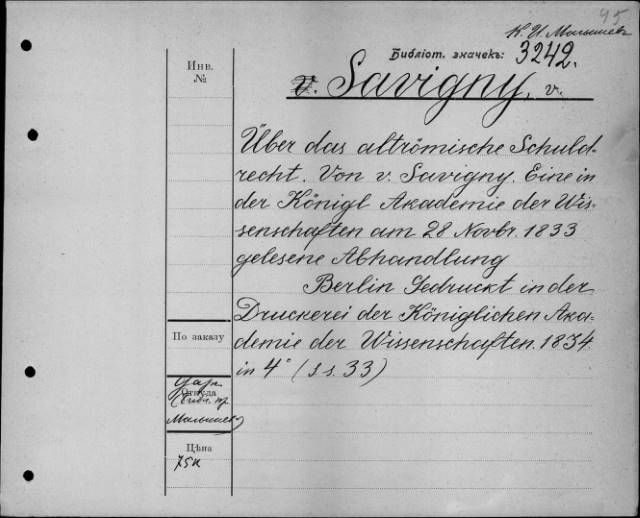 45
К. И. Малышевъ
Библіот. значекъ: 3242.
Инв.
№
v. Savigny, v.
Über das altrömische Schuld-
recht. Von v. Savigny. Eine in
der Königl Akademie der Wis-
senschaften am 28 Novbr. 1833
gelesene Abhandlung
Berlin Gedruckt in der
Druckerei der Königlichen Aka-
demie der Wissenschaften. 1834.
in 4° (S s. 33)
По заказу
Откуда
Малышев
Цѣна
75к